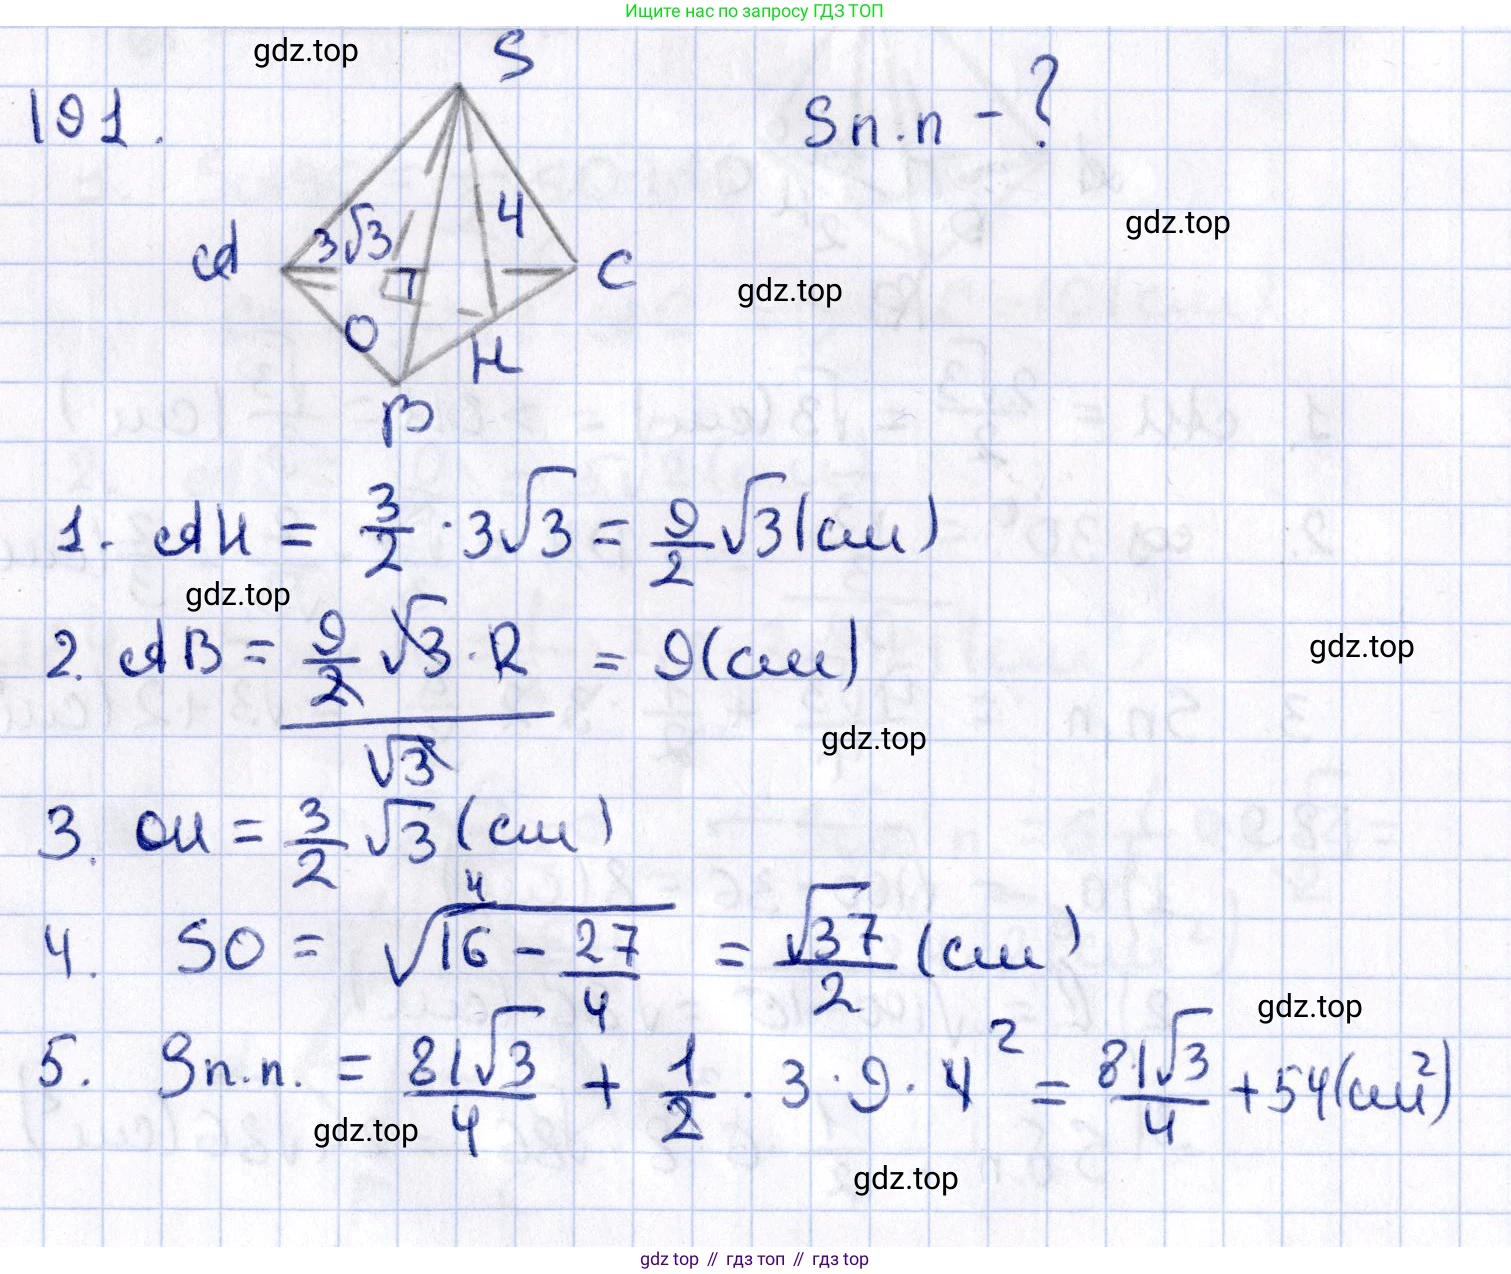 Ищите нас по запросу ГДЗ ТОП
gdz.top
S
191.
Sп.п - ?
3√3
4
gdz.top
A
C
gdz.top
O
H
B
1. AH = 3/2 · 3√3 = 9/2 √3 (см)
gdz.top
2. AB = 9/2 √3 · 2 / √3 = 9 (см)
gdz.top
gdz.top
3. OH = 3/2 √3 (см)
4. SO = √(16 - 27/4) = √37/2 (см)
4
gdz.top
5. Sп.п. = 81√3/4 + 1/2 · 3 · 9 · 4 2 = 81√3/4 + 54 (см²)
gdz.top
gdz.top
gdz top // гдз топ // гдз top